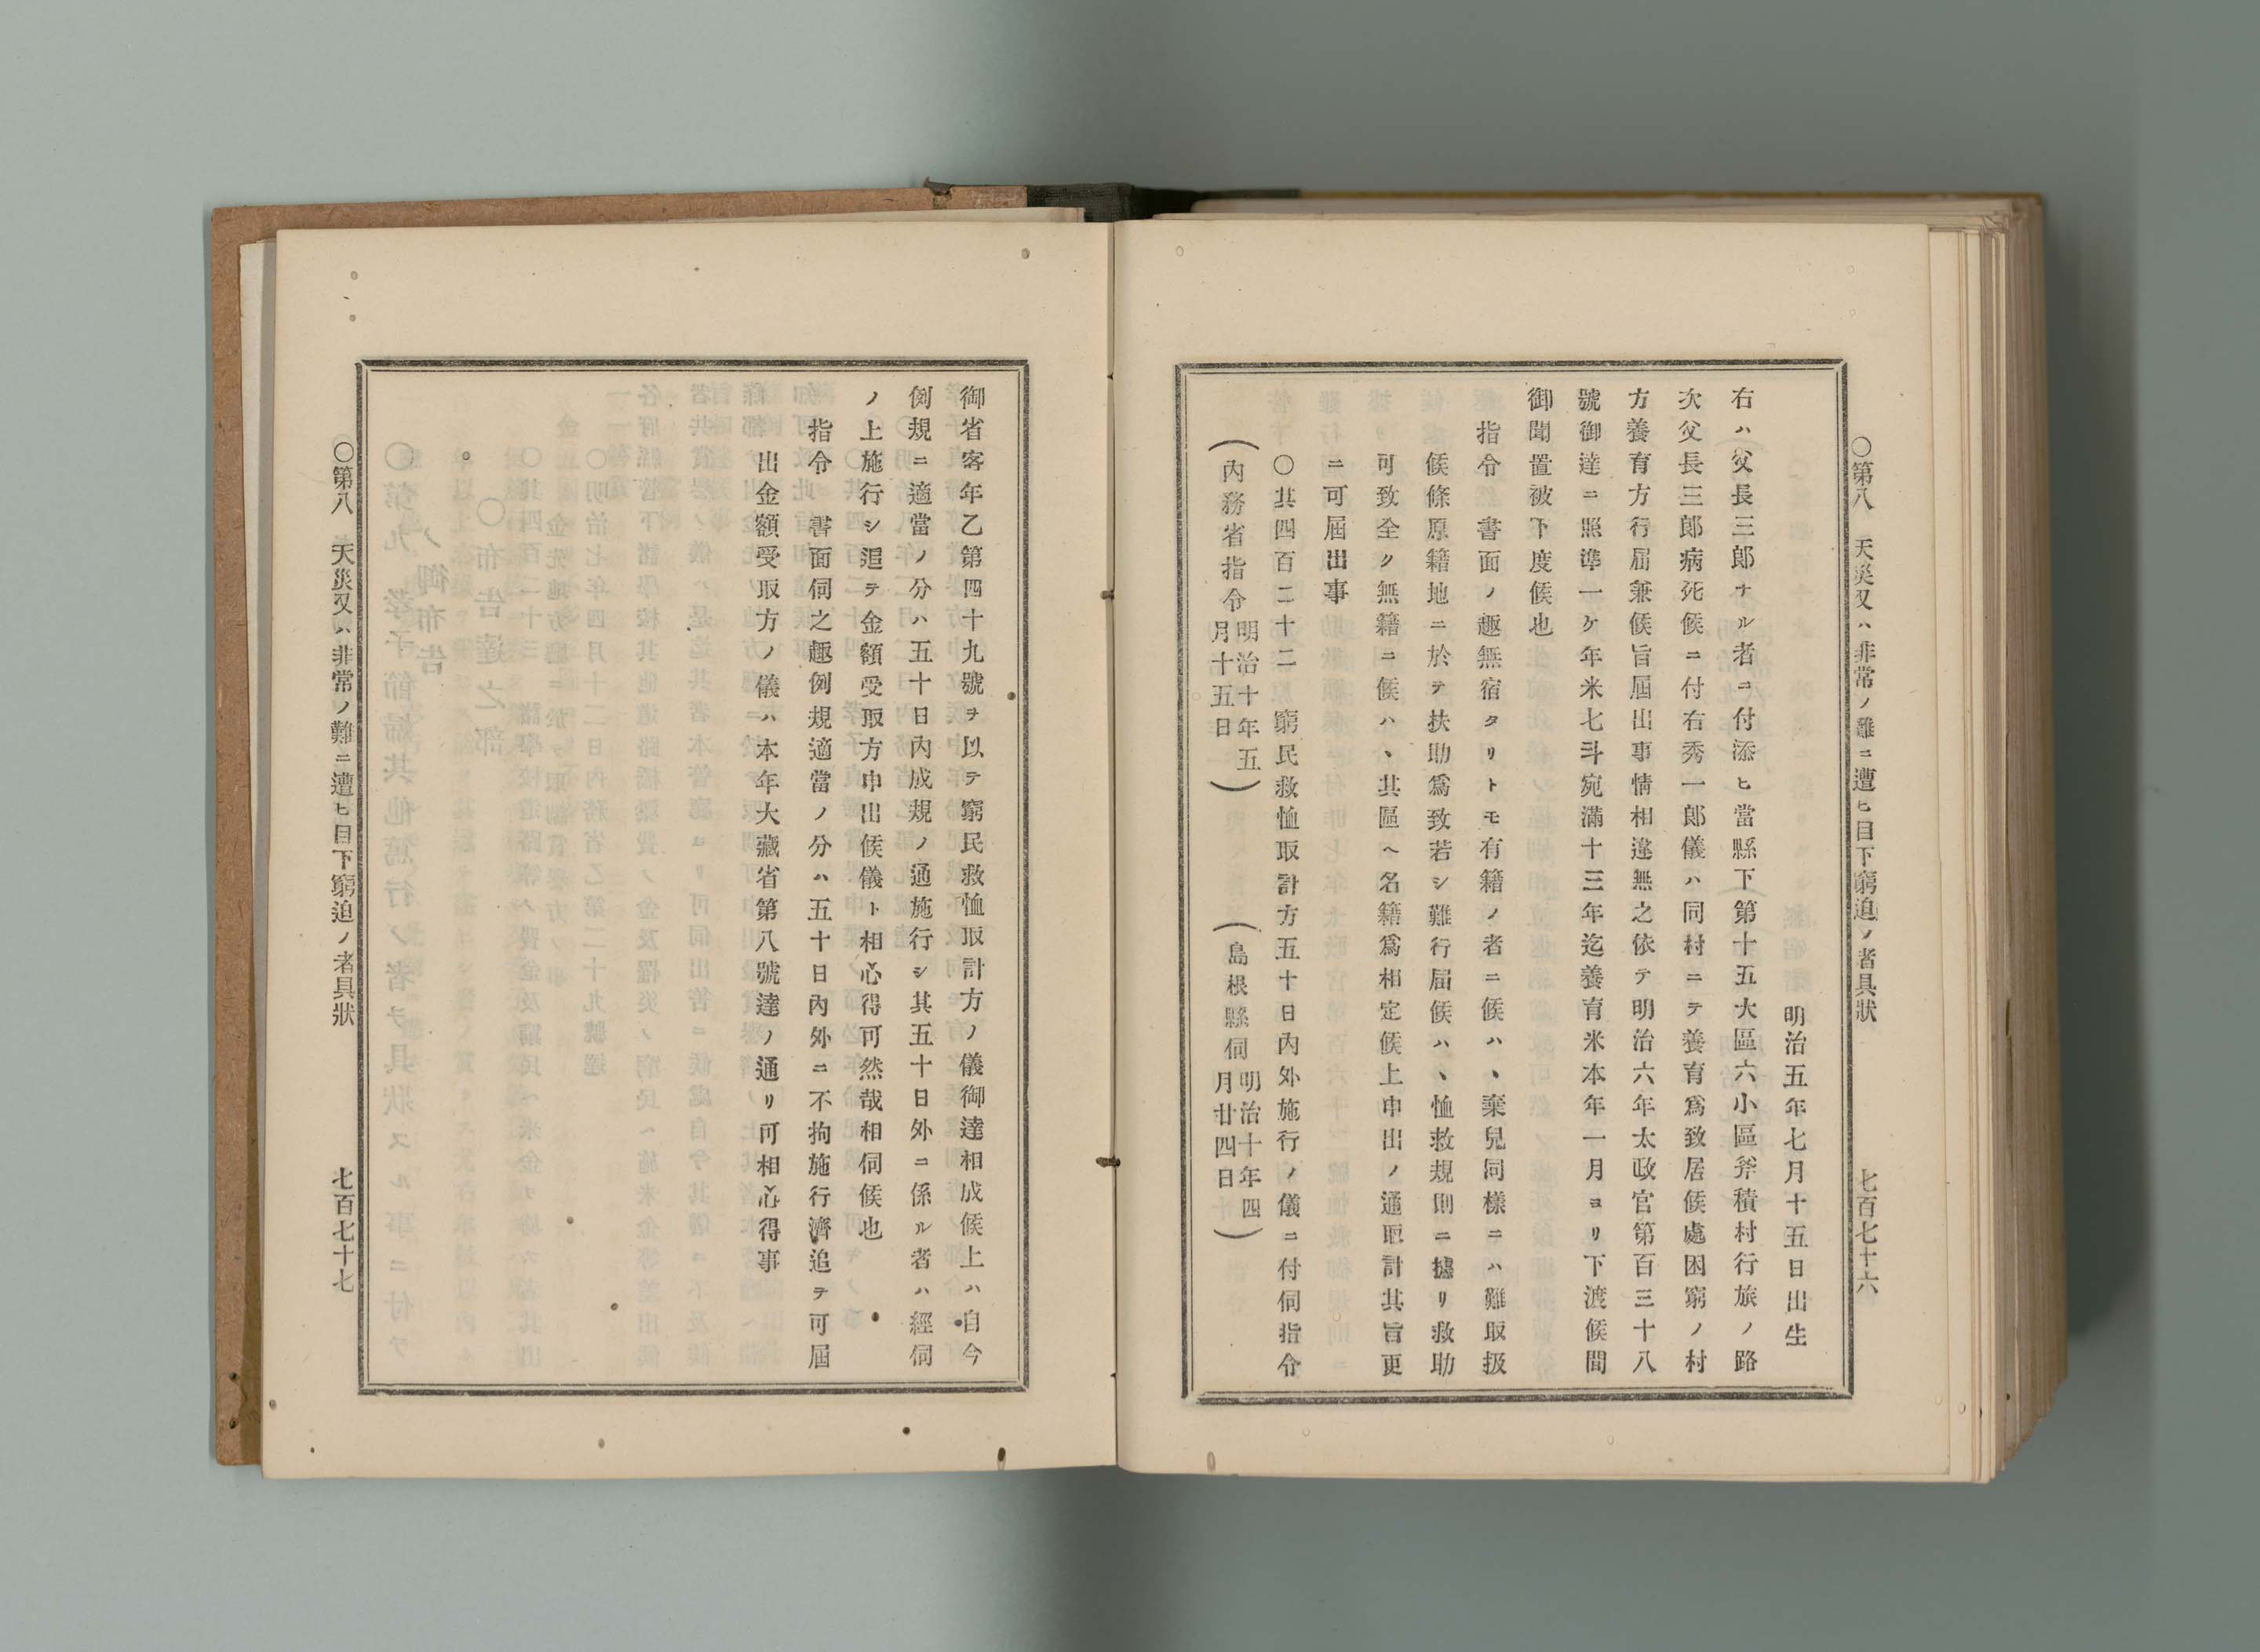 〇第八　天災又ハ非常ノ難ニ遭ヒ目下窮迫ノ者具狀　七百七十六
明治五年七月十五日出生
右ハ父長三郎ナル者ニ付添ヒ當縣下第十五大區六小區斧積村行旅ノ路
次父長三郎病死候ニ付右秀一郎儀ハ同村ニテ養育爲致居候處困窮ノ村
方養育方行屆兼候旨屆出事情相違無之依テ明治六年太政官第百三十八
號御達ニ照準一ケ年米七斗宛滿十三年迄養育米本年一月ヨリ下渡候間
御聞置被下度候也
指令　書面ノ趣無宿タリトモ有籍ノ者ニ候ハヽ棄兒同樣ニハ難取扱
候條原籍地ニ於テ扶助爲致若シ難行屆候ハヽ恤救規則ニ據リ救助
可致全ク無籍ニ候ハヽ其區ヘ名籍爲相定候上申出ノ通取計其旨更
ニ可屆出事
〇其四百二十二　窮民救恤取計方五十日内外施行ノ儀ニ付伺指令
（内務省指令明治十年五月十五日）　（島根縣伺明治十年四月廿四日）
御省客年乙第四十九號ヲ以テ窮民救恤取計方ノ儀御達相成候上ハ自今
例規ニ適當ノ分ハ五十日内成規ノ通施行シ其五十日外ニ係ル者ハ經伺
ノ上施行シ追テ金額受取方申出候儀ト相心得可然哉相伺候也
指令　書面伺之趣例規適當ノ分ハ五十日内外ニ不拘施行濟追テ可屆
出金額受取方ノ儀ハ本年大藏省第八號達ノ通リ可相心得事
〇第八　天災又ハ非常ノ難ニ遭ヒ目下窮迫ノ者具狀　七百七十七